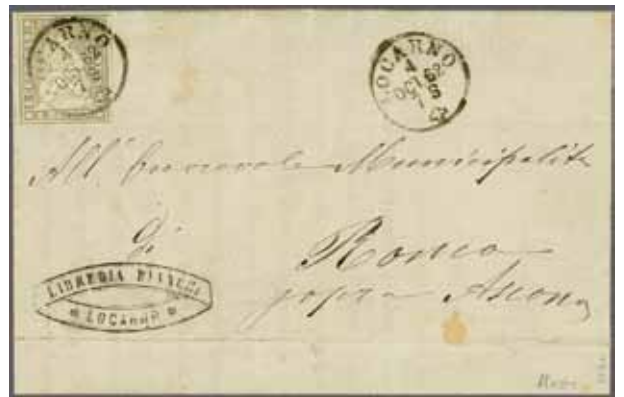 LOCARNO
LOCARNO
All' onorevole Municipalità
di
Ronco
sopra Ascona
LIBRERIA
LOCARNO